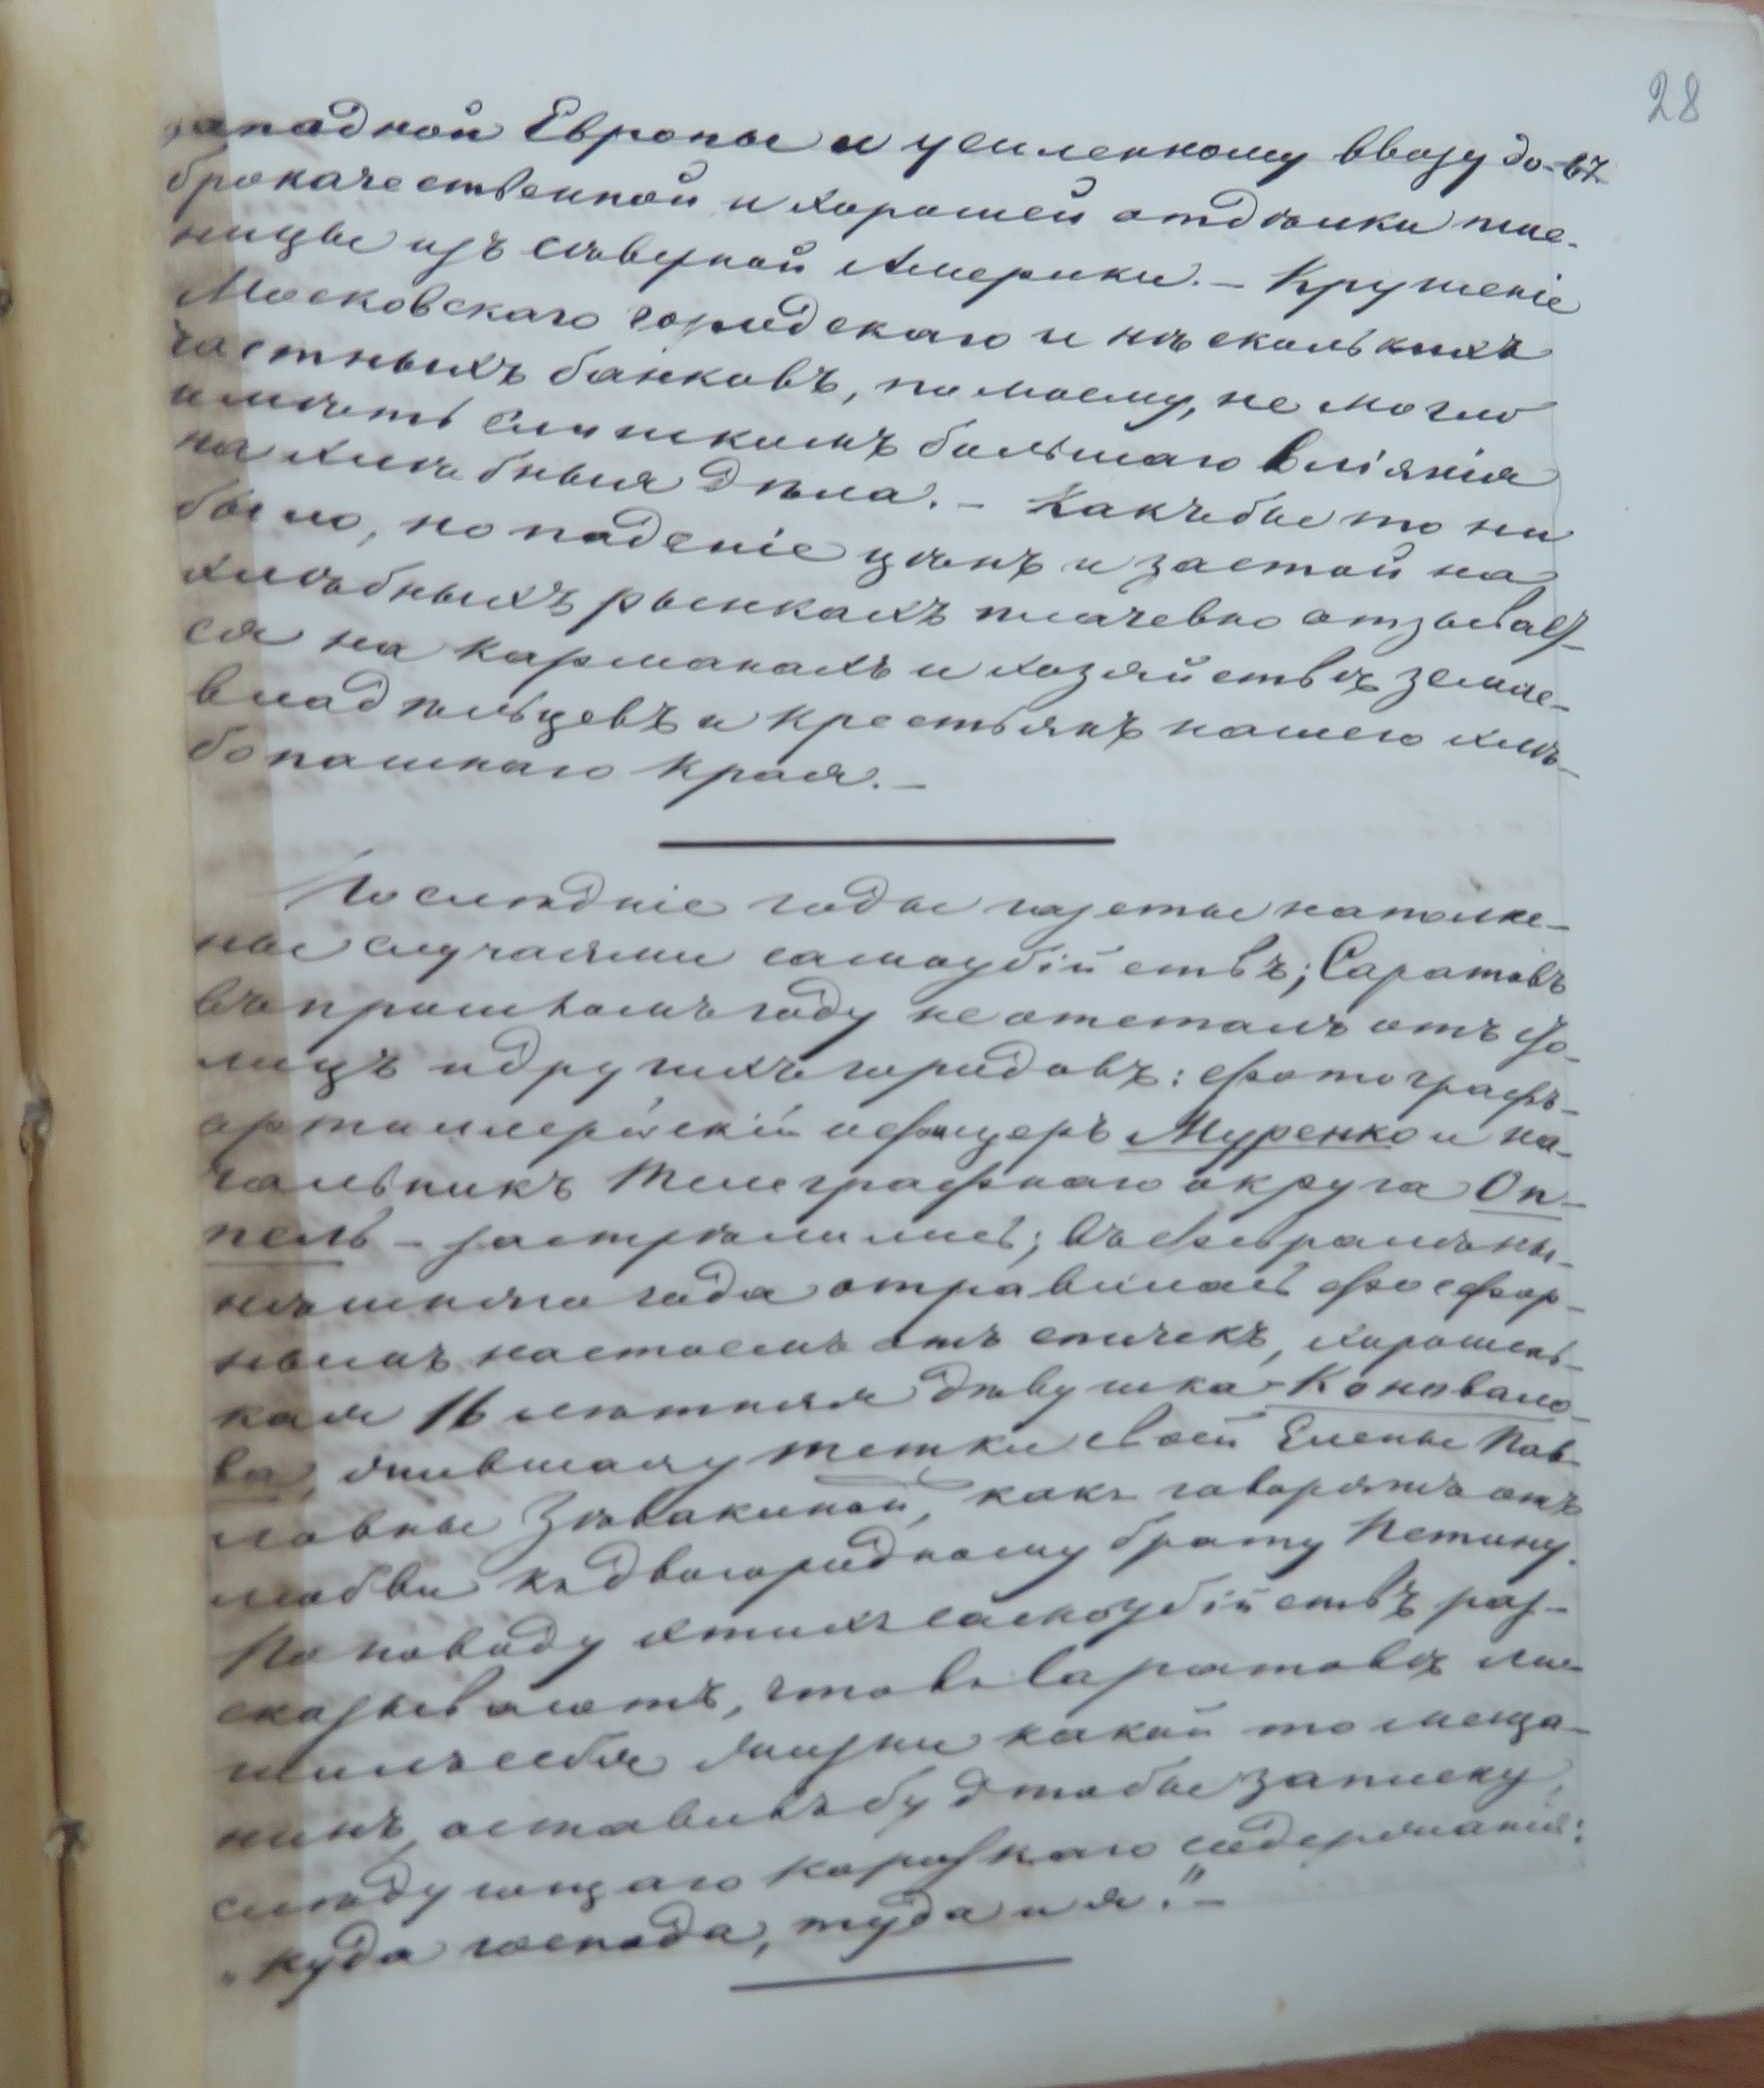 28
западной Европы и усиленному ввозу до- въ
брокачественной и хорошей отдѣлки пше-
ницы изъ сѣверной Америки. – Крушеніе
Московскаго городскаго и нѣсколькихъ
частныхъ банковъ, по моему, не могло
имѣть слишкомъ большаго вліянія
на хлѣбныя дѣла. – Какъ бы то ни
было, но паденіе цѣнъ и застой на
хлѣбныхъ рынкахъ плачевно отзывает-
ся на карманахъ и хозяйствѣ земле-
владѣльцевъ и крестьянъ нашего хлѣ-
бопашнаго края. –
Послѣдніе годы газеты наполне-
ны случаями самоубійствъ; Саратовъ
въ прошломъ году не отсталъ отъ сто-
лицъ и другихъ городовъ: фотографъ-
артиллерійскій офицеръ Муренко и на-
чальникъ телеграфнаго округа Оп-
пель – застрѣлились; въ февралѣ ны-
нѣшняго года отравилась фосфор-
нымъ настоемъ отъ спичекъ, хорошень-
кая 16 лѣтняя дѣвушка – Коновало-
ва, жившая у тетки своей Елены Пав-
ловны Зѣвакиной, какъ говорятъ отъ
любви къ двоюродному брату Петину.
По поводу этихъ самоубійствъ раз-
сказываютъ, что въ Саратовѣ ли-
шилъ себя жизни какой то мѣща-
нинъ, оставивъ будто бы записку,
слѣдующаго короткаго содержанія:
„куда господа, туда и я." –